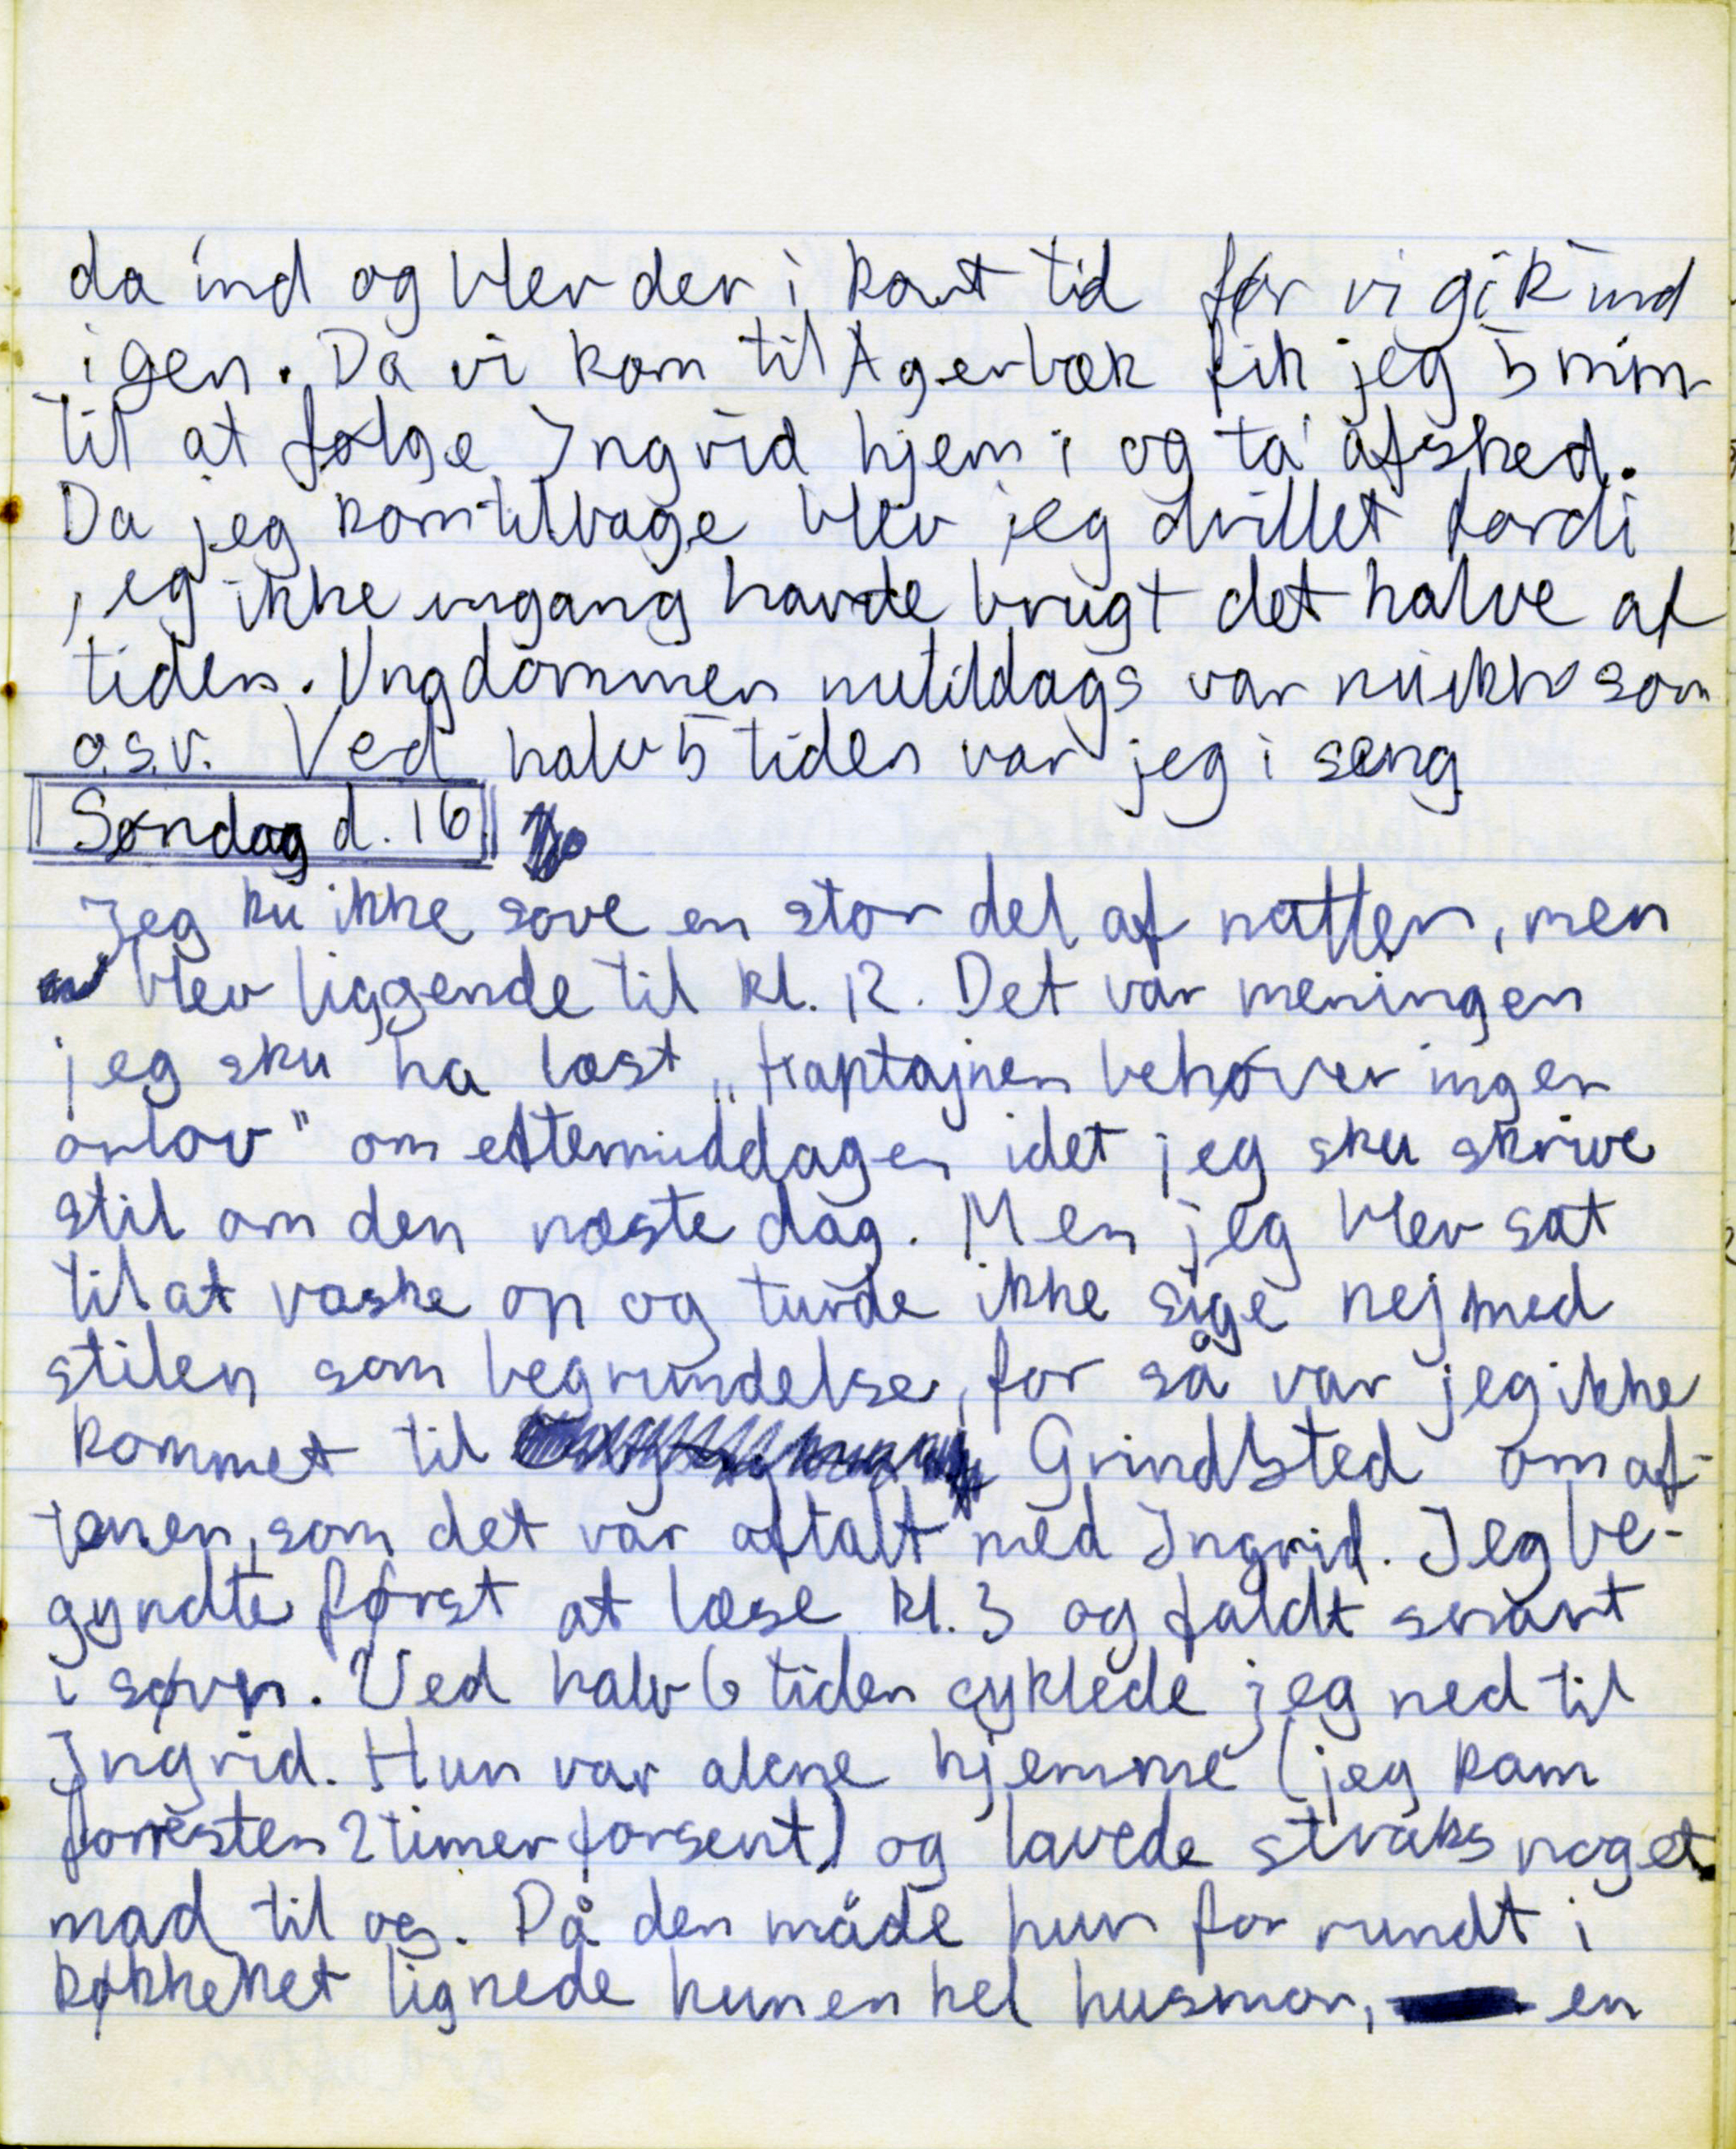 da ind og blev der i kort tid før vi gik ind
igen. Da vi kom til Agerbæk fik jeg 5 min
til at følge Ingrid hjem i og ta' afsked.
Da jeg kom tilbage blev jeg drillet fordi
jeg ikke engang havde brugt det halve af
tiden. Ungdommen nutildags var nu ikke som
o.s.v. Ved halv 5 tiden var jeg i seng
Søndag d. 16.
Jeg ku ikke sove en stor del af natten, men
blev liggende til kl. 12. Det var meningen
jeg sku ha læst „Kaptajnen behøver ingen
orlov" om eftermiddagen idet jeg sku skrive
stil om den næste dag. Men jeg blev sat
til at vaske op og turde ikke sige nej med
stilen som begrundelse, for så var jeg ikke
kommet til Grindsted om af-
tenen, som det var aftalt med Ingrid. Jeg be-
gyndte først at læse kl. 3 og faldt snart
i søvn. Ved halv 6 tiden cyklede jeg ned til
Ingrid. Hun var alene hjemme (jeg kom
forresten 2 timer forsent) og lavede straks noget
mad til os. På den måde hun for rundt i
køkkenet lignede hun en hel husmor, en